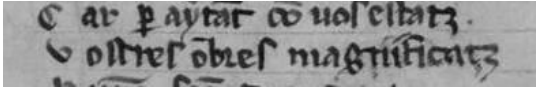 C ar ꝑ aytāt cō uos estatȝ.
V ostres ōbres magnificatȝ